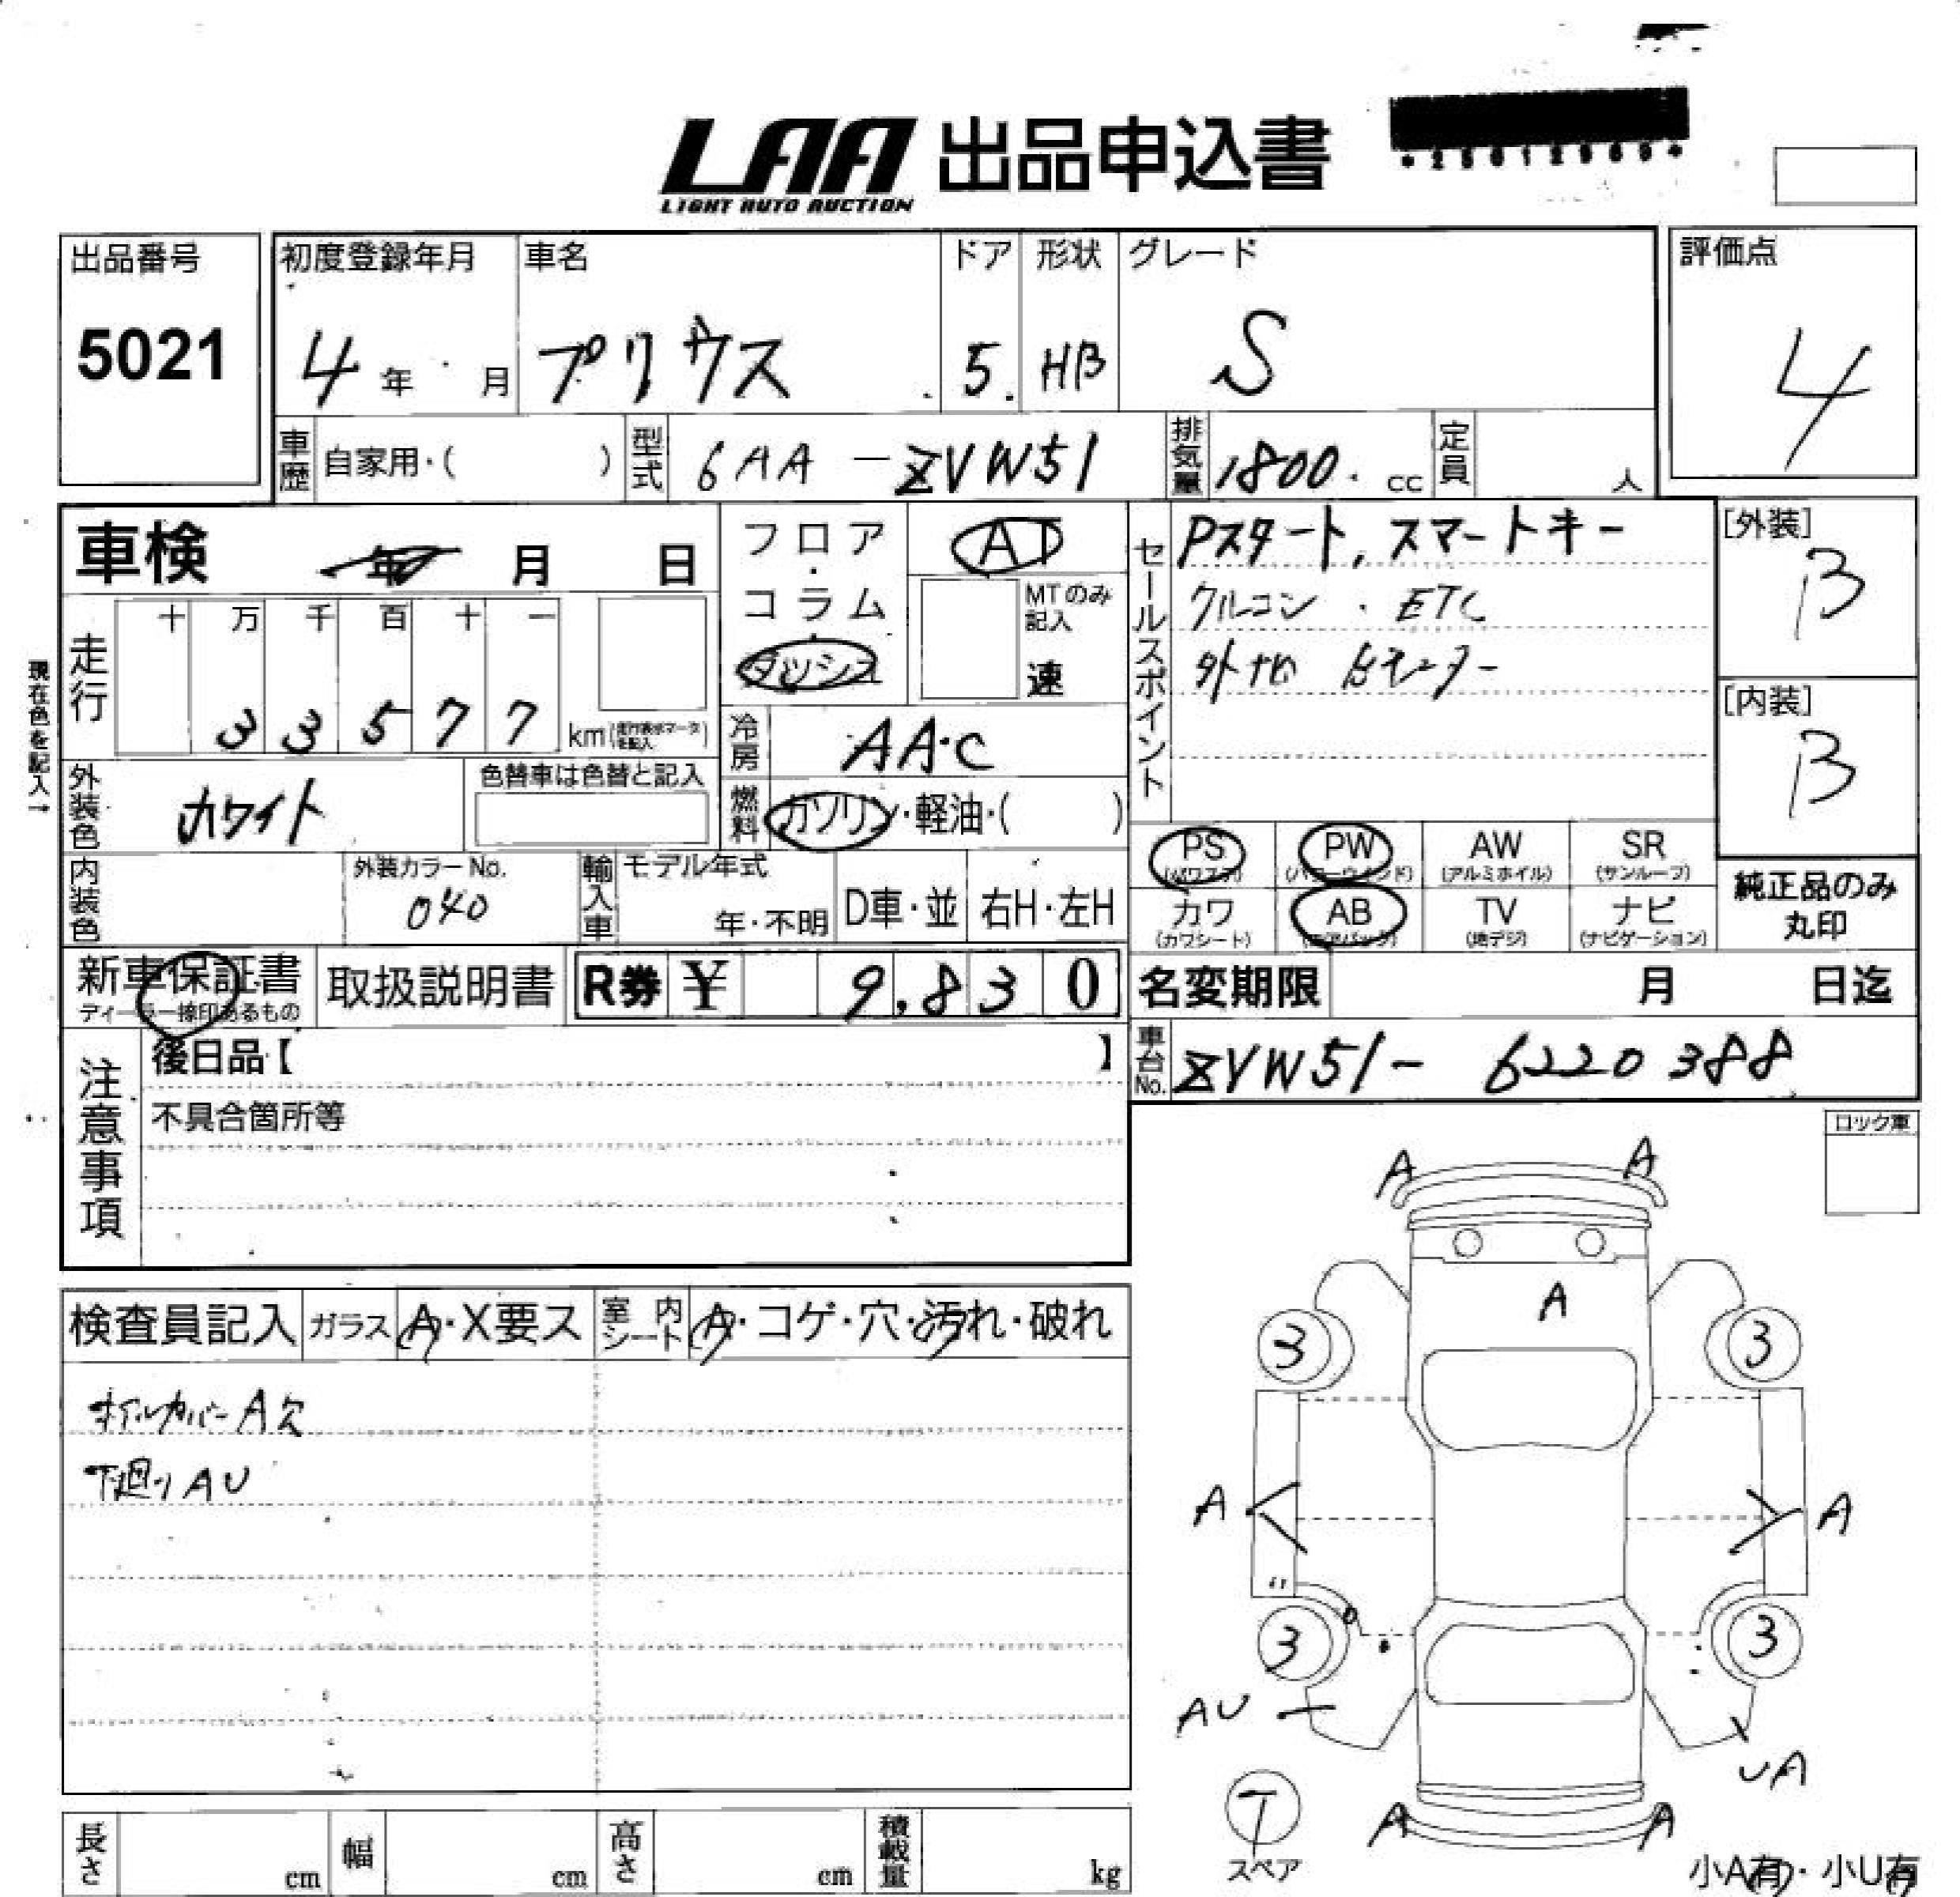 LAA 出品申込書
LIGHT AUTO AUCTION
出品番号
5021
初度登録年月
4年 月
車名
プリウス
ドア
5
形状
HB
グレード
S
評価点
4
車歴 自家用・( )
型式 6AA-ZVW51
排気量 1800 cc
定員 人
車検 年 月 日
走行
十 万 千 百 十 一
3 3 5 7 7 km
現在色を記入→
フロア・コラム・ダッシュ
AT
MTのみ記入
速
冷房 AAC
燃料 ガソリン・軽油・( )
セールスポイント
Pスタート, スマートキー
クルコン・ETC
[外装]
B
[内装]
B
外装色 ホワイト
色替車は色替と記入
内装色
外装カラーNo.
040
輸入車 モデル年式
年・不明
D車・並
右H・左H
PS (パワステ)
PW (パワーウインド)
AW (アルミホイル)
SR (サンルーフ)
カワ (カワシート)
AB (エアバック)
TV (地デジ)
ナビ (ナビゲーション)
純正品のみ丸印
新車保証書
ディーラー捺印あるもの
取扱説明書
R券 ¥ 9,830
名変期限 月 日迄
車台No. ZVW51-6220388
注意事項
後日品【 】
不具合箇所等
ロック車
検査員記入
ガラス A・X要ス
室内シート A・コゲ・穴・汚れ・破れ
ホイルカバーA欠
下廻りAU
A A
A
3 3
A A
3 3
AU
UA
T
スペア
A A
小A有・小U有
長さ cm
幅 cm
高さ cm
積載量 kg